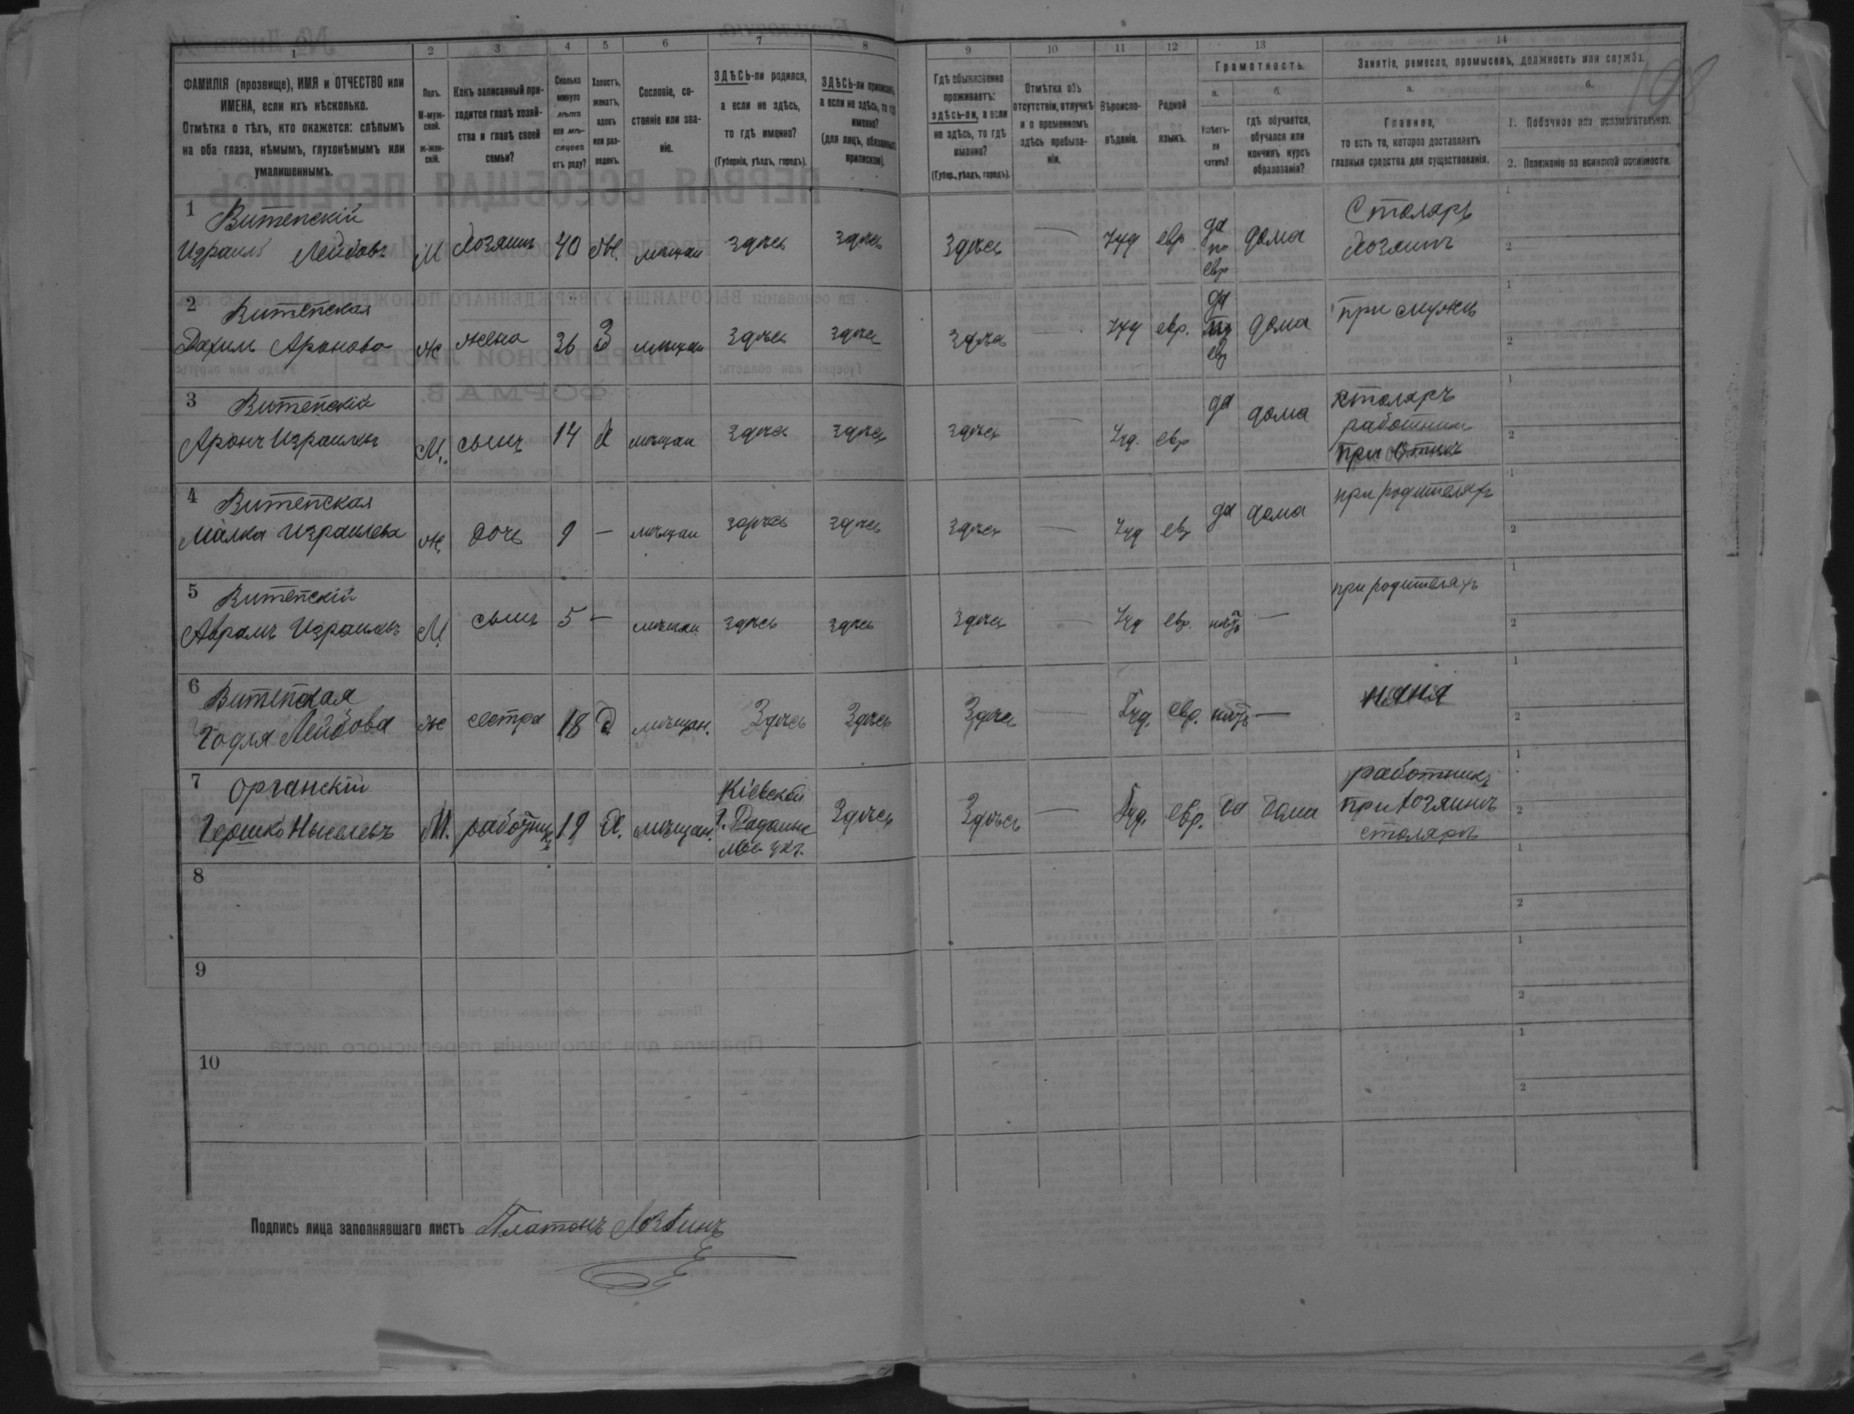 1 2 3 4 5 6 7 8 9 10 11 12 13 14
ФАМИЛІЯ (прозвище), ИМЯ и ОТЧЕСТВО или
ИМЕНА, если ихъ нѣсколько.
Отмѣтка о тѣхъ, кто окажется: слѣпымъ
на оба глаза, нѣмымъ, глухонѣмымъ или
умалишеннымъ.
Полъ.
М-муж-
ской.
ж-жен-
скій.
Какъ записанный при-
ходится главѣ хозяй-
ства и главѣ своей
семьи?
Сколько
минуло
лѣтъ
или мѣ-
сяцевъ
отъ роду?
Холостъ,
женатъ,
вдовъ
или раз-
веденъ.
Сословіе, со-
стояніе или зва-
ніе.
ЗДѢСЬ-ли родился,
а если не здѣсь,
то гдѣ именно?
(Губернія, уѣздъ, городъ).
ЗДѢСЬ-ли приписанъ,
а если не здѣсь, то гдѣ
именно?
(для лицъ, обязанныхъ
припискою).
Гдѣ обыкновенно
проживаетъ:
здѣсь-ли, а если
не здѣсь, то гдѣ
именно?
(Губер., уѣздъ, городъ).
Отмѣтка объ
отсутствіи, отлучкѣ
и о временномъ
здѣсь пребыва-
ніи.
Вѣроиспо-
вѣданіе.
Родной
языкъ.
Грамотность.
а.
Умѣетъ-
ли
читать?
б.
гдѣ обучается,
обучался или
кончилъ курсъ
образованія?
Занятіе, ремесло, промыселъ, должность или служба.
а.
Главное,
то есть то, которое доставляетъ
главныя средства для существованія.
б.
1. Побочное или вспомогательное.
2. Положеніе по воинской повинности.
198
1 Витепскій Столяръ
Израиль Лейбовъ М Хозяинъ 40 Ж. мѣщан здѣсь здѣсь здѣсь — Іуд евр да по евр дома Хозяинъ
2 Витепская
Аронова ж жена 36 З мѣщан здѣсь здѣсь здѣсь — Іуд евр. да по евр дома при мужѣ
3 Витепскій столяръ
Аронъ Израилевъ М. сынъ 14 Х мѣщан здѣсь здѣсь здѣсь — Іуд. евр да дома работник
при Отцѣ
4 Витепская
Малка Израилева ж. дочь 9 — мѣщан здѣсь здѣсь здѣсь — Іуд евр да дома при родителях
5 Витепскій
Аврамъ Израилевъ М. сынъ 5 — мѣщан здѣсь здѣсь здѣсь — Іуд евр. нѣтъ — при родителях
6 Витепская
Годля Лейбова Ж сестра 18 Д мѣщан. Здѣсь Здѣсь Здѣсь — Іуд. евр. нѣтъ — няня
7 Органскій Кіевской работникъ
Гершко М. работникъ 19 Х. мѣщан. Здѣсь Здѣсь — Іуд. евр. да дома при Хозяинѣ
столяръ
8
9
10
Подпись лица заполнявшаго листъ Платонъ